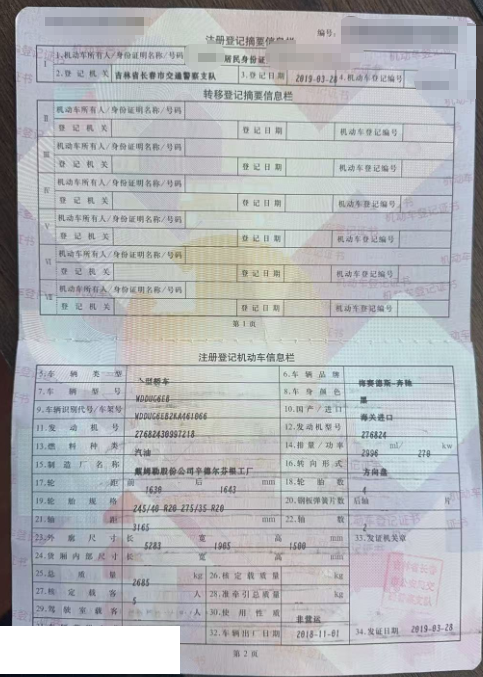 注册登记摘要信息栏
编号:
I 1.机动车所有人/身份证明名称/号码 居民身份证
2.登记机关 吉林省长春市交通警察支队 3.登记日期 2019-03-28 4.机动车登记编号
转移登记摘要信息栏
II 机动车所有人/身份证明名称/号码
登记机关 登记日期 机动车登记编号
III 机动车所有人/身份证明名称/号码
登记机关 登记日期 机动车登记编号
IV 机动车所有人/身份证明名称/号码
登记机关 登记日期 机动车登记编号
V 机动车所有人/身份证明名称/号码
登记机关 登记日期 机动车登记编号
VI 机动车所有人/身份证明名称/号码
登记机关 登记日期 机动车登记编号
VII 机动车所有人/身份证明名称/号码
登记机关 登记日期 机动车登记编号
第1页
注册登记机动车信息栏
5.车辆类型 型轿车 6.车辆品牌 梅赛德斯-奔驰
7.车辆型号 WDDUG6EB 8.车身颜色 墨
9.车辆识别代号/车架号 WDDUG6EB2KA461066 10.国产/进口 海关进口
11.发动机号 27682430997218 12.发动机型号 276824
13.燃料种类 汽油 14.排量/功率 2996 ml/ 270 kw
15.制造厂名称 戴姆勒股份公司辛德尔芬根工厂 16.转向形式 方向盘
17.轮距 前 1630 后 1643 mm 18.轮胎数 4
19.轮胎规格 245/40 R20 275/35 R20 20.钢板弹簧片数 后轴 片
21.轴距 3165 mm 22.轴数 2
23.外廓尺寸 长 5283 宽 1905 高 1500 mm 33.发证机关章
24.货厢内部尺寸 长 宽 高 mm
25.总质量 2685 kg 26.核定载质量 kg
27.核定载客 5 人 28.准牵引总质量 kg
29.驾驶室载客 人 30.使用性质 非营运
32.车辆出厂日期 2018-11-01 34.发证日期 2019-03-28
第2页